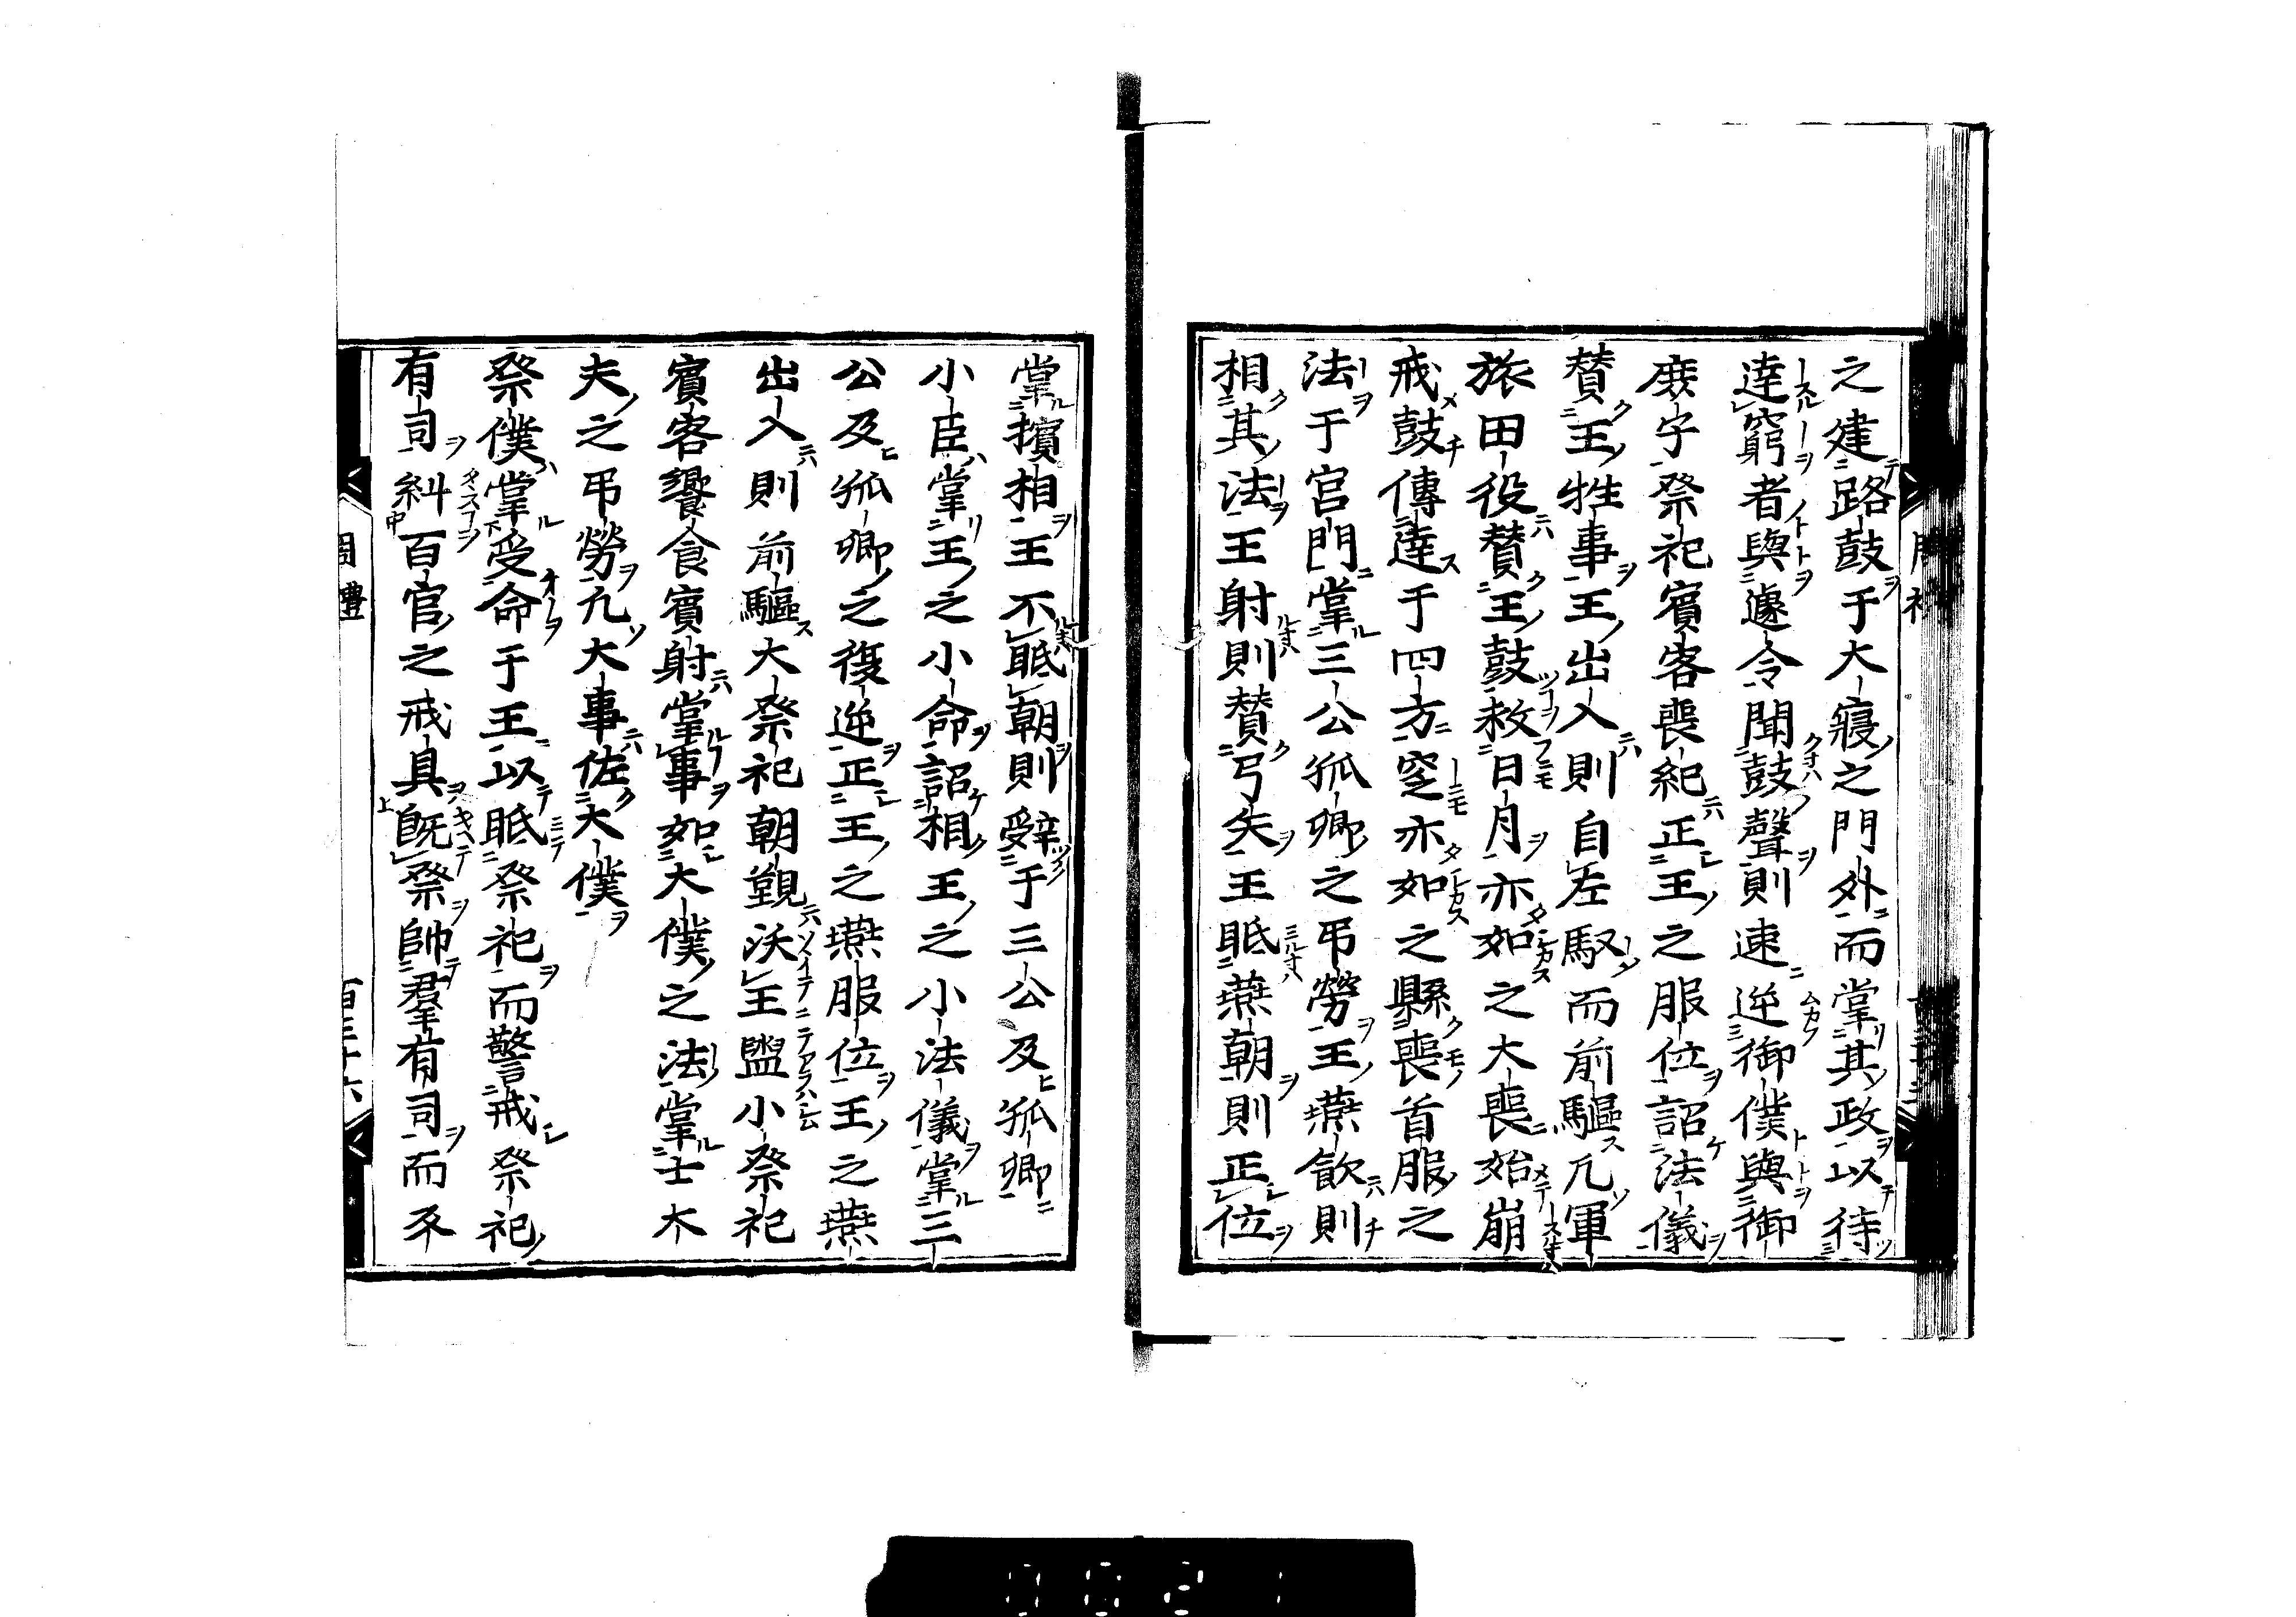 之建路鼓于大寢之門外而掌其政以待
達窮者與遽令聞鼓聲則速逆御僕與御
庶子祭祀賓客喪紀正王之服位詔法儀
賛王牲事王出入則自左馭而前驅凢軍
旅田役賛王鼓救日月亦如之大喪始崩
戒鼓傳達于四方窆亦如之縣喪首服之
法于宫門掌三公孤卿之弔勞王燕飲則
相其法王射則賛弓矢王眂燕朝則正位
掌擯相王不眂朝則辤于三公及孤卿
小臣掌王之小命詔相王之小法儀掌三
公及孤卿之復逆正王之燕服位王之燕
出入則前驅大祭祀朝覲沃王盥小祭祀
賓客饗食賓射掌事如大僕之法掌士大
夫之弔勞凢大事佐大僕
祭僕掌受命于王以眂祭祀而警戒祭祀
有司糾百官之戒具旣祭帥羣有司而反
周禮
百三十六